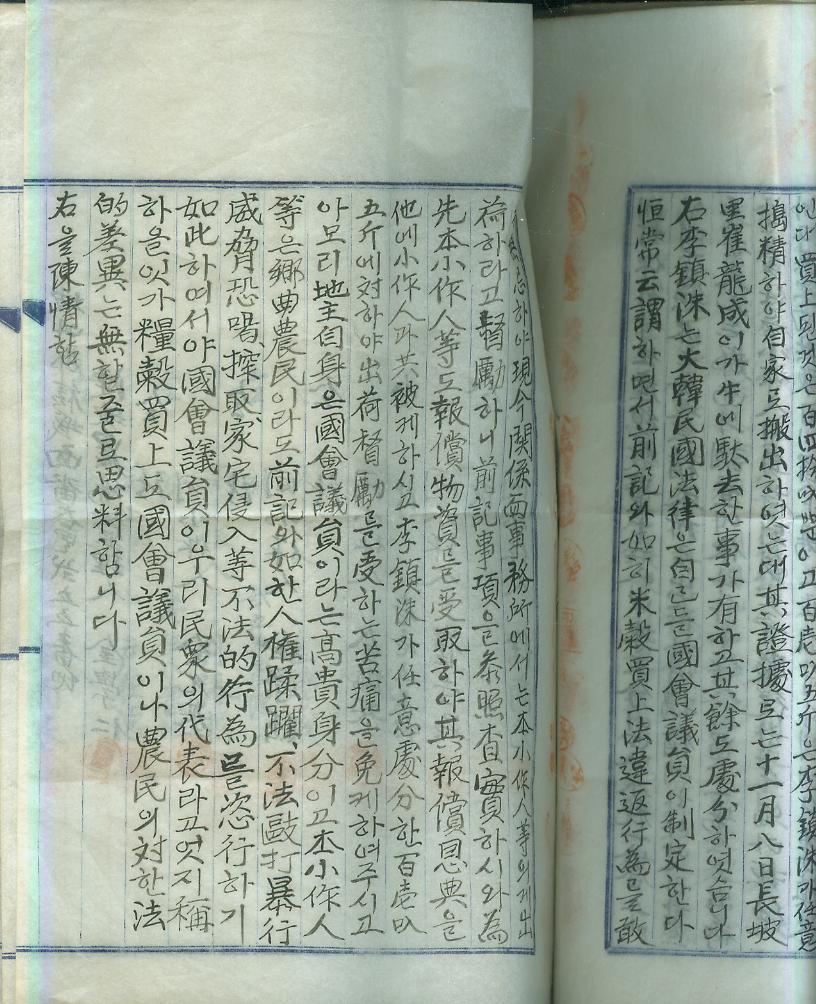 買上된것은百四拾叺뿐이고百壱叺五斤은李鎭洙가任意
搗精하야自家로搬出하엿는대其證據로는十一月八日長坡
里崔龍成이가牛에駄去한事가有하고其餘도處分하엿슴니다
右李鎭洙는大韓民國法律은自己들國會議員이制定한다
恒常云謂하면서前記와如히米穀買上法違返行為를敢
하야現今関係面事務所에서는本小作人等의게出
荷하라고督勵하니前記事項을叅照査實하시와為
先本小作人等도報償物資를受取하야其報償恩典을
他에小作人과共被케하시고李鎭洙가任意處分한百壱叺
五斤에対하야出荷督勵를受하는苦痛을免케하여주시고
아모리地主自身은國會議員이라는高貴身分이고本小作人
等은鄕曲農民이라도前記와如한人權蹂躙、不法毆打暴行
威脅恐喝、探取、家宅侵入等不法的行為를恣行하기
如此하여서야國會議員이우리民衆의代表라고엇지稱
하을잇가糧穀買上도國會議員이나農民의対한法
的差異는無할줄로思料함니다
右을陳情함